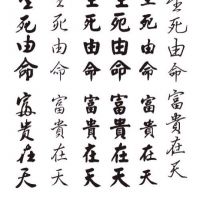 生死由命
生死由命
生死由命
生死由命
生死由命
生死由命
富貴在天
富貴在天
富貴在天
富貴在天
富貴在天
富貴在天